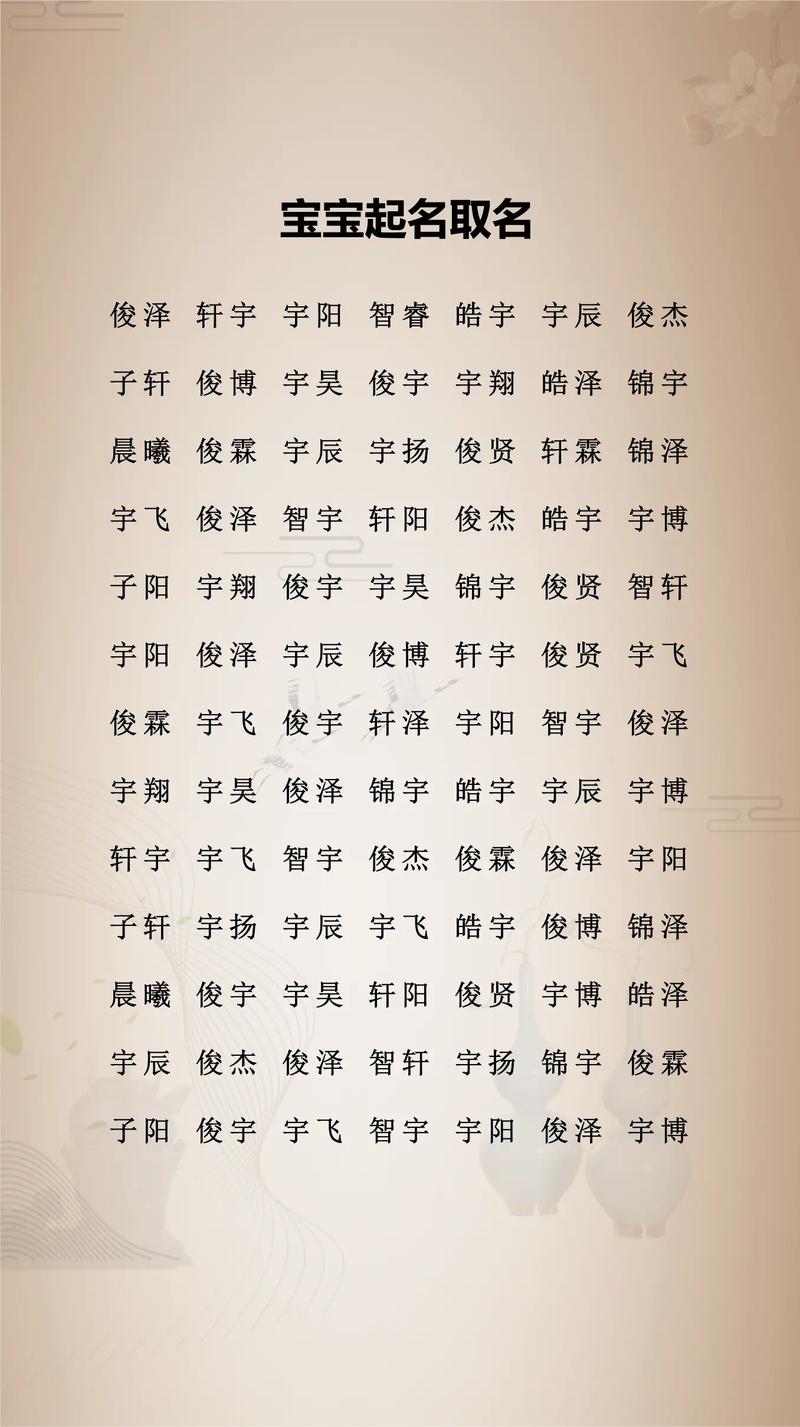 宝宝起名取名
俊泽 轩宇 宇阳 智睿 皓宇 宇辰 俊杰
子轩 俊博 宇昊 俊宇 宇翔 皓泽 锦宇
晨曦 俊霖 宇辰 宇扬 俊贤 轩霖 锦泽
宇飞 俊泽 智宇 轩阳 俊杰 皓宇 宇博
子阳 宇翔 俊宇 宇昊 锦宇 俊贤 智轩
宇阳 俊泽 宇辰 俊博 轩宇 俊贤 宇飞
俊霖 宇飞 俊宇 轩泽 宇阳 智宇 俊泽
宇翔 宇昊 俊泽 锦宇 皓宇 宇辰 宇博
轩宇 宇飞 智宇 俊杰 俊霖 俊泽 宇阳
子轩 宇扬 宇辰 宇飞 皓宇 俊博 锦泽
晨曦 俊宇 宇昊 轩阳 俊贤 宇博 皓泽
宇辰 俊杰 俊泽 智轩 宇扬 锦宇 俊霖
子阳 俊宇 宇飞 智宇 宇阳 俊泽 宇博